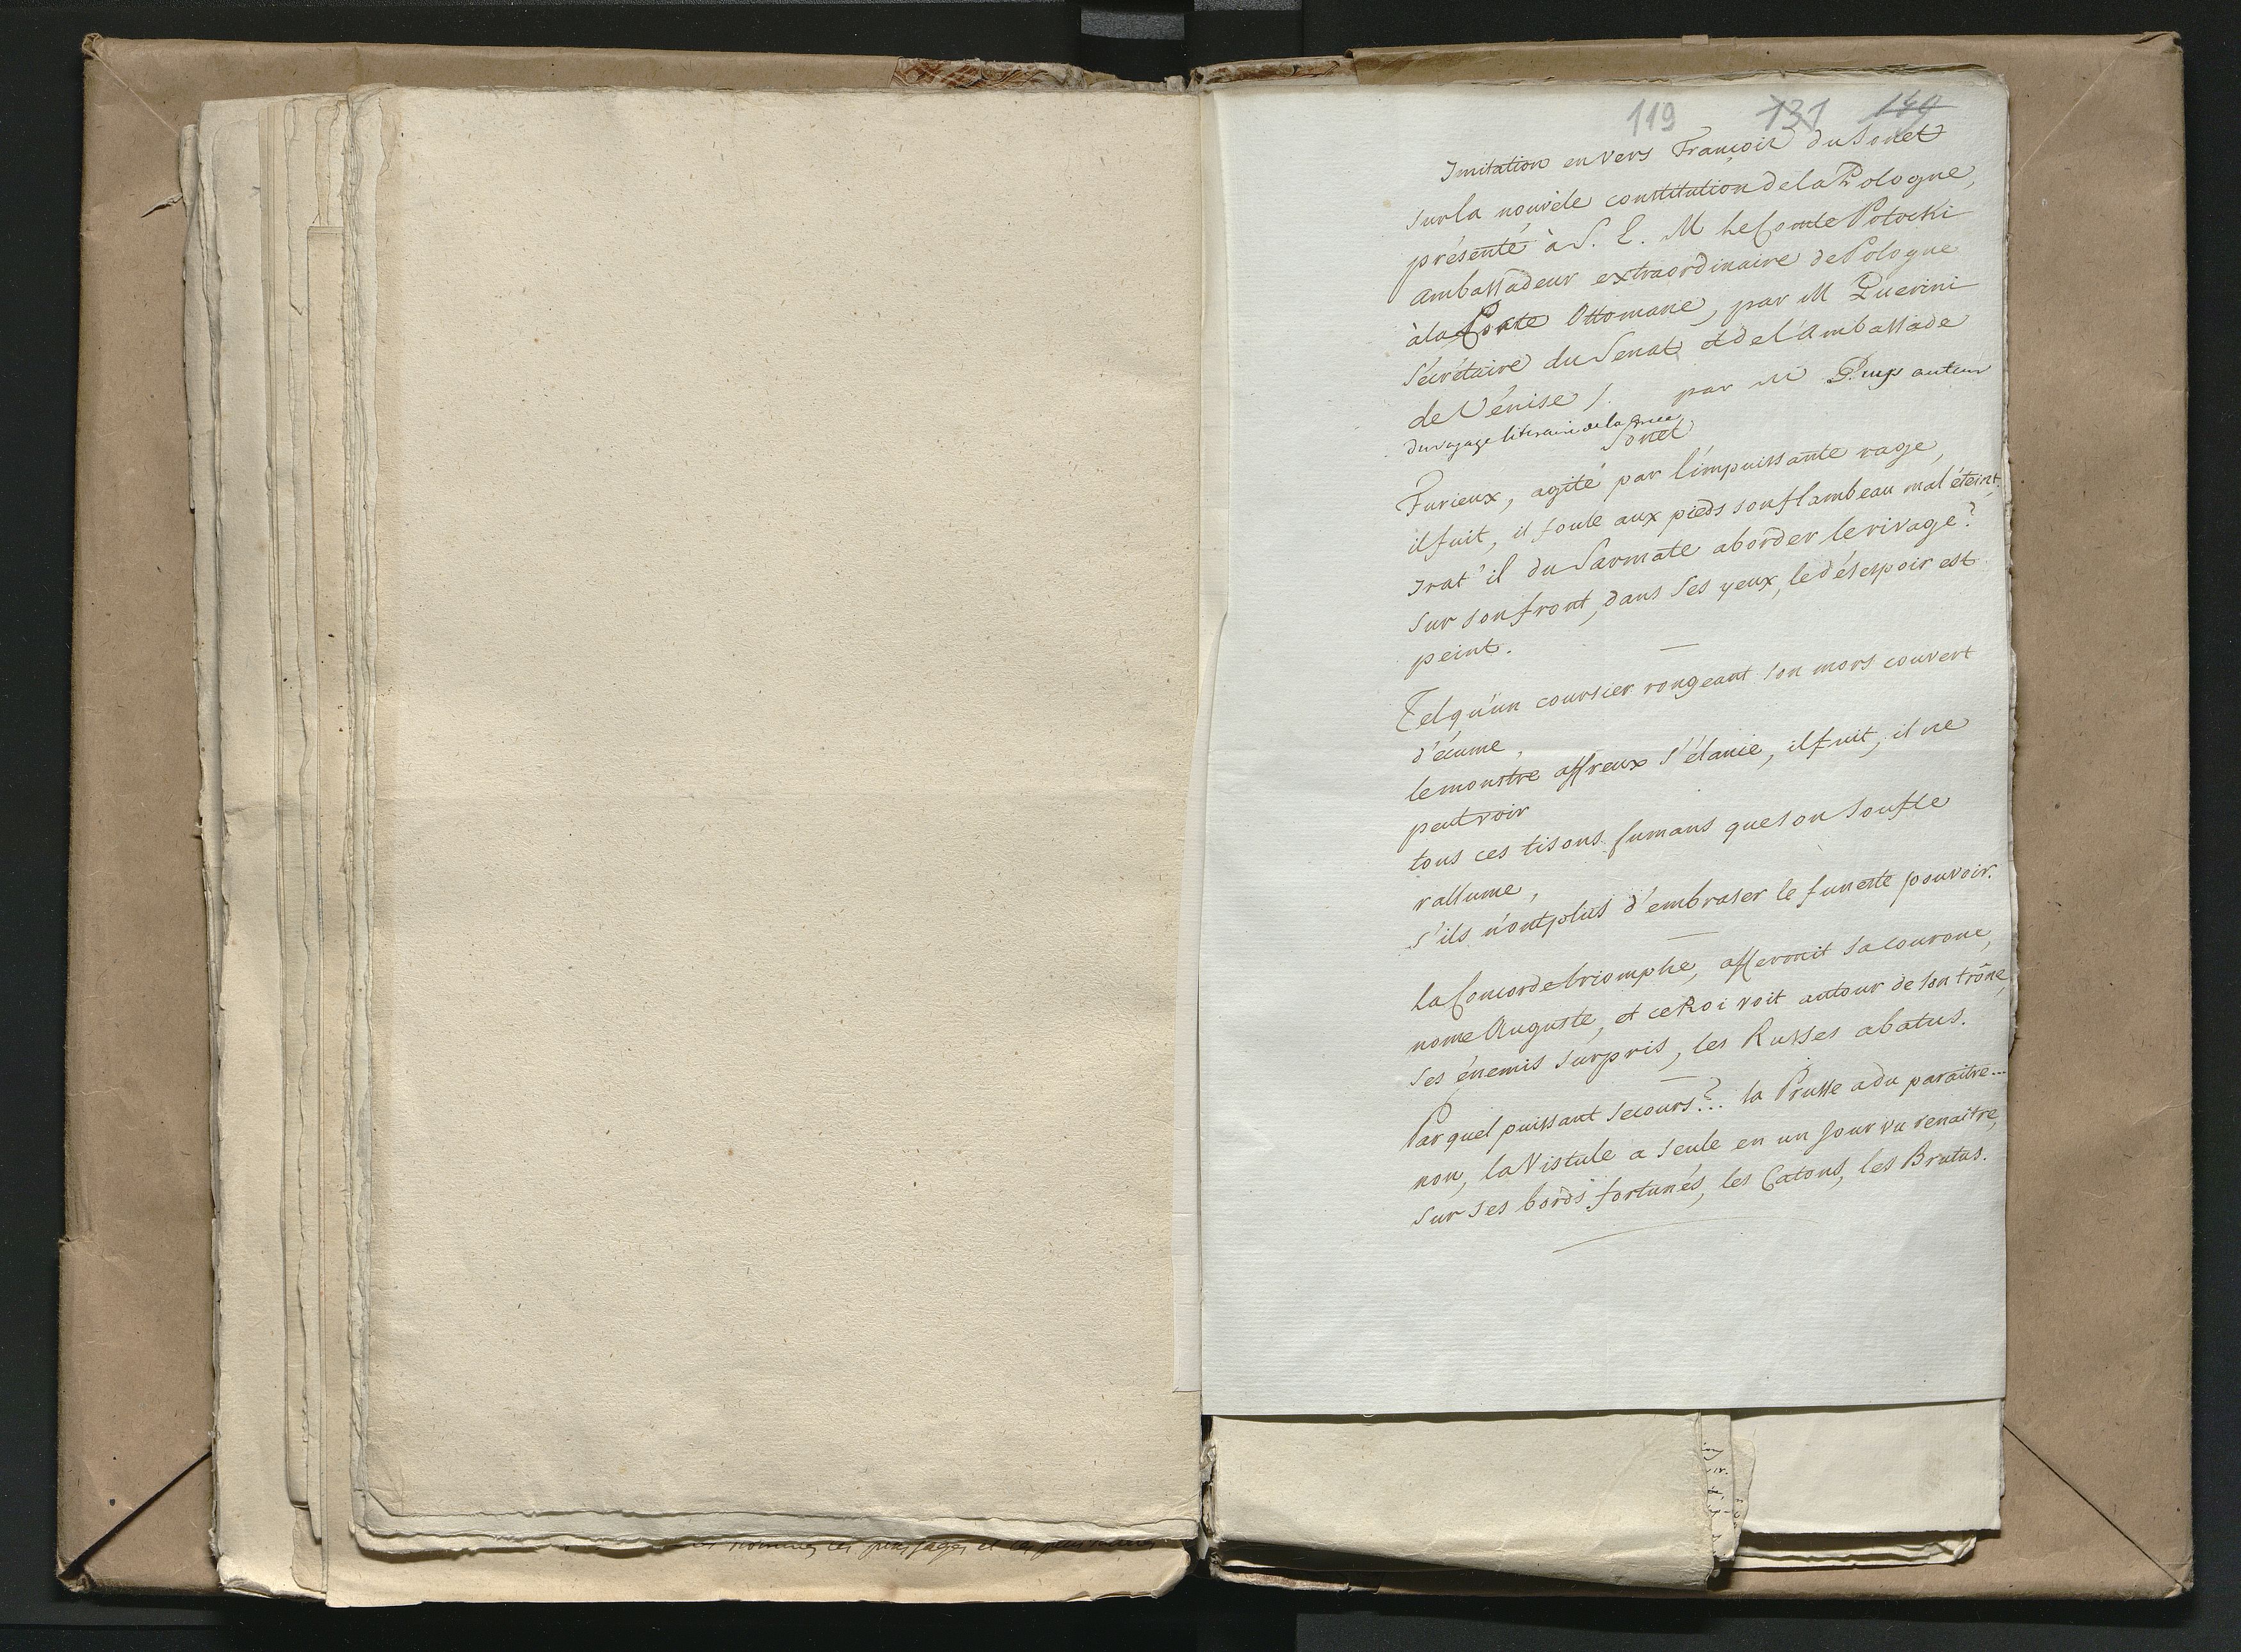 119 131 149
Imitation en vers François du Sonet
sur la nouvèle constitution de la Pologne,
présenté à S. E. M le Comte Potocki
ambassadeur extraordinaire de Pologne
à la Porte Ottomane, par M Querini
Sécrétaire du Senat et de l'Ambassade
de Vénise /. par M Guys auteur
du voyage literaire de la Grece
Sonet
Furieux, agité par l'impuissante rage,
il fuit, il foule aux pieds son flambeau mal éteint;
irat'il du Sarmate aborder le rivage?
sur son front, dans ses yeux, le désespoir est
peint.
Tel qu'un coursier rongeant son mors couvert
d'écume,
le monstre affreux s'élance, il fuit, il ne
peut voir
tous ces tisons fumans que son soufle
rallume,
s'ils n'ont plus d'embraser le funeste pouvoir.
La Concorde triomphe, affermit sa courone,
nome Auguste, et ce Roi voit autour de son trône,
ses énemis surpris, les Russes abatus.
Par quel puissant secours?... la Prusse a du paraître...
non, la Vistule a seule en un jour vu renaitre,
sur ses bords fortunés, les Catons, les Brutus.